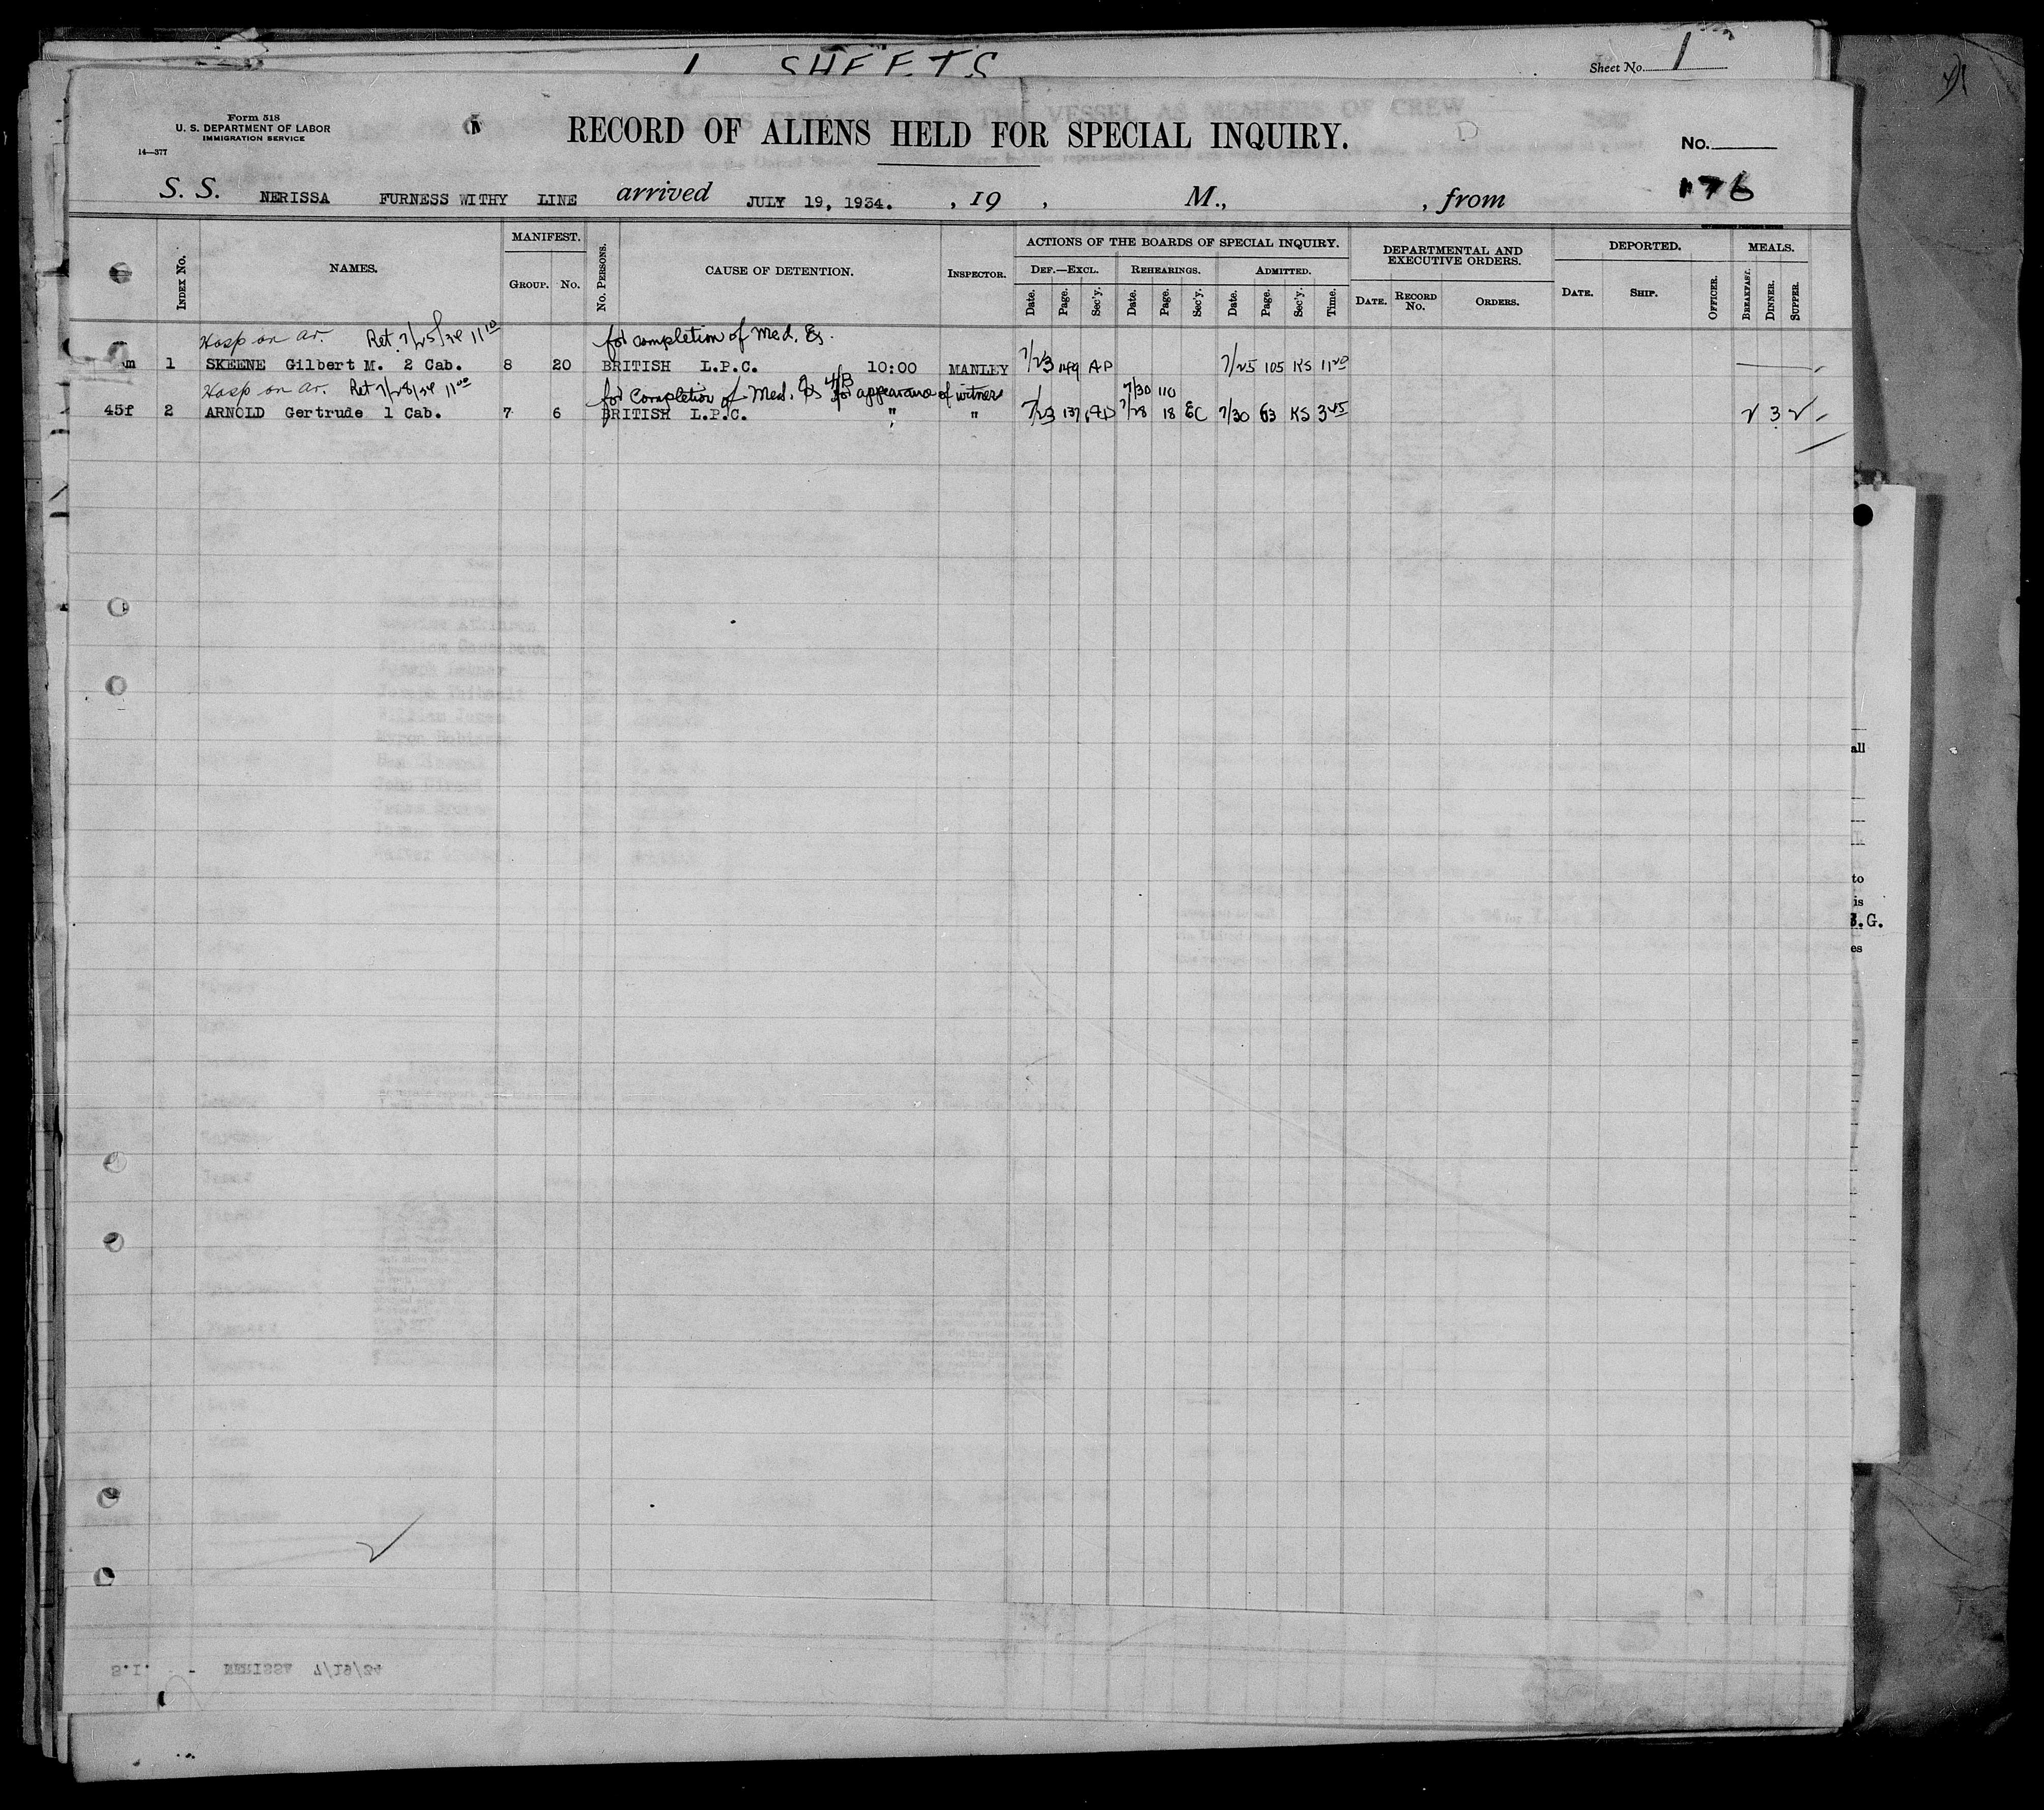 1 SHEETS
Sheet No. 1
Form 518
U. S. DEPARTMENT OF LABOR
IMMIGRATION SERVICE
14—377
RECORD OF ALIENS HELD FOR SPECIAL INQUIRY.
No.
176
S. S. NERISSA FURNESS WITHY LINE arrived JULY 19, 1934. , 19 , M., , from
INDEX No. NAMES. MANIFEST. GROUP. No. No. PERSONS. CAUSE OF DETENTION. INSPECTOR. ACTIONS OF THE BOARDS OF SPECIAL INQUIRY. DEPARTMENTAL AND EXECUTIVE ORDERS. DEPORTED. MEALS.
DEF.—EXCL. REHEARINGS. ADMITTED.
Date. Page. Sec'y. Date. Page. Sec'y. Date. Page. Sec'y. Time. DATE. RECORD No. ORDERS. DATE. SHIP. OFFICER. BREAKFAST. DINNER. SUPPER.
Hosp on ar. Ret 7/25/34 11 10 for completion of Med. Ex.
m 1 SKEENE Gilbert M. 2 Cab. 8 20 BRITISH L.P.C. 10:00 MANLEY 7/23 149 AP 7/25 105 KS 11 20
Hosp on ar. Ret 7/28/34 11 00 for Completion of Med. Ex for appearance of witness 7/30 110
45f 2 ARNOLD Gertrude 1 Cab. 7 6 BRITISH L.P.C. " " 7/23 137 AP 7/28 18 EC 7/30 63 KS 3 45 2 3 2
all
to
is
.G.
es
S.I. - NERISSA 7/19/34